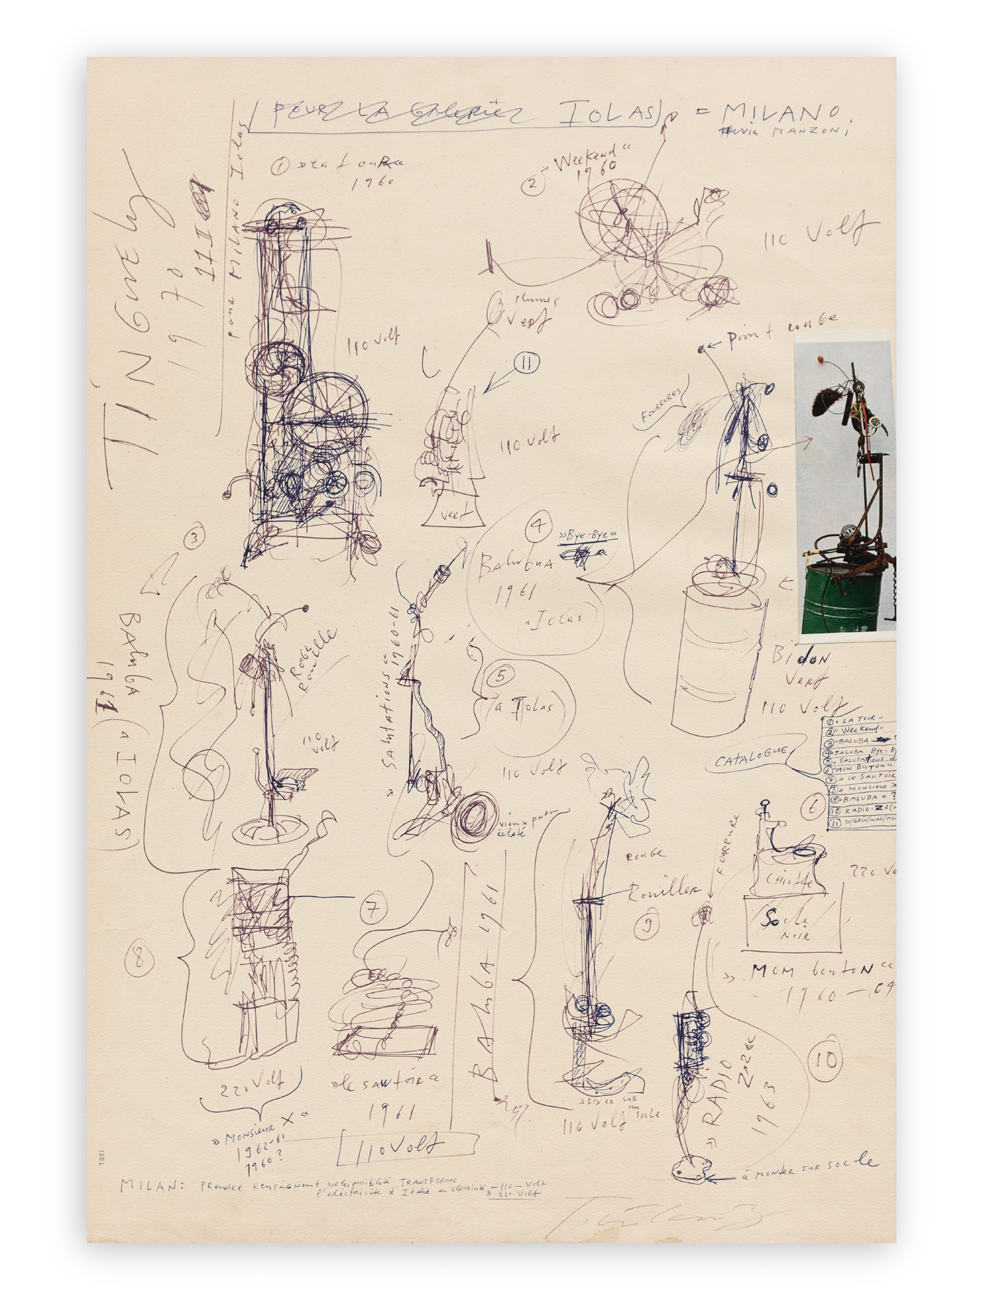 POUR LA GALERIE IOLAS = MILANO
via MANZONI
TINGUELY
1970
111
pour MILANO Iolas
① »La tour«
1960
110 Volt
② "Weekend"
1960
110 Volt
vert
⑪
110 Volt
vert
Point rouge
FOURRURES
④ »Bye-Bye«
Baluba
1961
Iolas
Bidon
vert
110 Volt
③
BALUBA (a IOLAS)
1961
Rouille
110 Volt
»Salutations« 1960-61
⑤
(a Iolas)
110 Volt
vieux pneu
éclaté
CATALOGUE
① »LA TOUR«
② »Weekend«
③ »BALUBA
④ BALUBA Bye-B
⑥ "MON BOUTON"
⑦ » LE SAUTOIR
⑧ » MONSIEUR X
⑨ »BALUBA«
⑩ RADIO-
⑪
⑥
Chiotte
220 Vo
Socle
NOIR
» MOM bouton «
1960 — 69
⑧
220 Volt
» MONSIEUR X «
1962-61
1960?
⑦
»le sautoir«
1961
110 Volt
BALUBA 1961
ROUGE
Rouiller
⑨
à fixer sur
un socle
110 Volt
FOURRURE
⑩
» RADIO
1963
à monter sur socle
MILAN: Prendre renseignement
TRANSFORMER
l'electricité d'Italie
110 - Volt
& 220 Volt